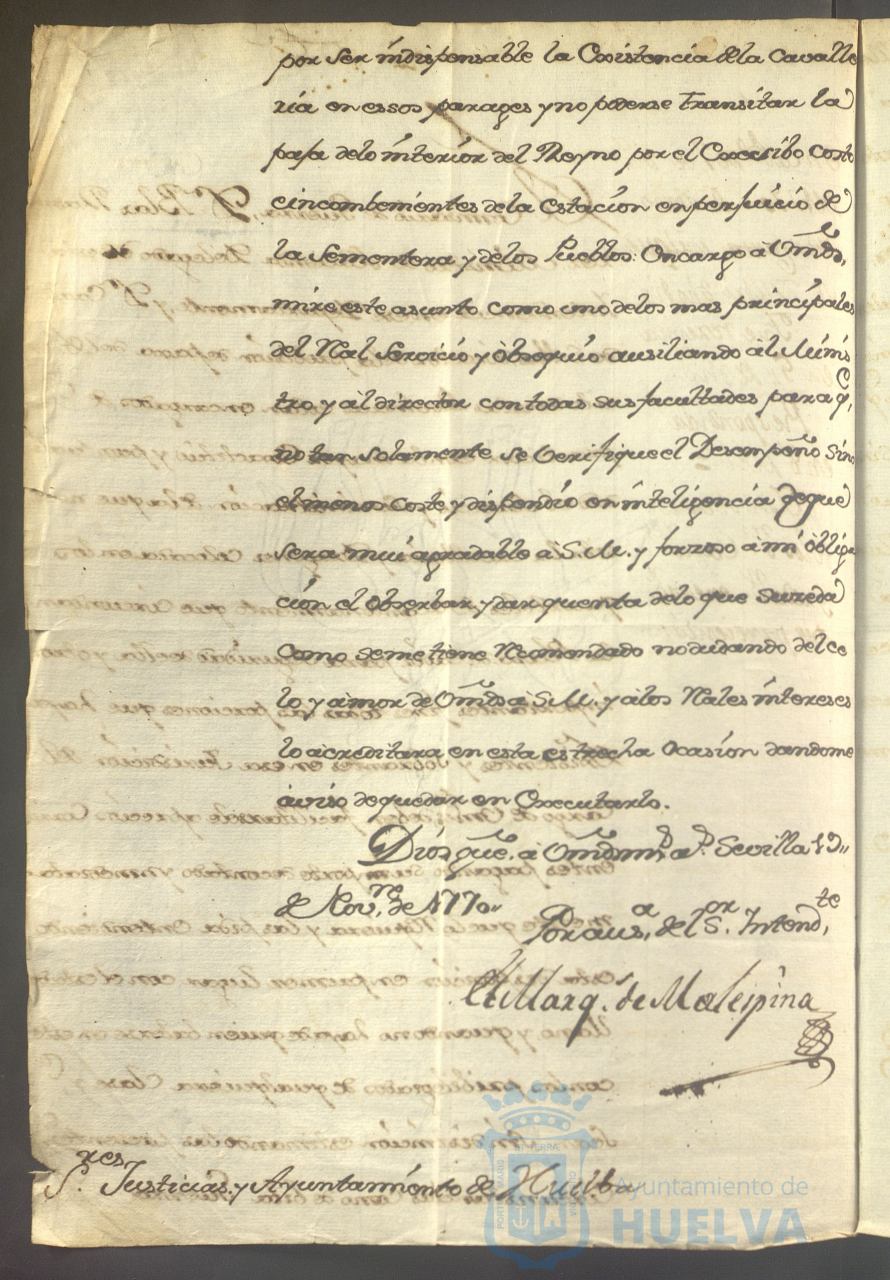 por ser indispensable la Existencia de la Cavalle
ria en essos parages y no poderse transitar la
paja delo interior del Reyno por el Excesibo coste
e incombenientes de la estacion en perjuicio de
la Sementera y delos Pueblos: Encargo à Vmds,
mire este asunto como uno delos mas principales
del Rl Servicio y òbsequio ausiliando àl Minis
tro y àl director con todas sus facultades para q,
no tan Solamente se Verifique el Desempeño sino
el menos coste y dispendio en inteligencia que
sera mui agradable à S.M. y forzoso à mi òbliga
ción el Observar, y dar quenta delo que Suzeda
como se me tiene Recomendado no dudando del ce
lo y àmor de Vmds à S.M. y àlos Rales intereses
lo àcreditara en esta estrecha Ocasion dandome
àviso de quedar en Executarlo.
Dios gue. à Vmds ms as. Sevilla 19,,
de Novre. de 1770,,
Por ausa, del Sor. Intendte,
El Marqs. de Malespina
Sres. Justicias, y Ayuntamiento de Huelba
Ayuntamiento de
HUELVA